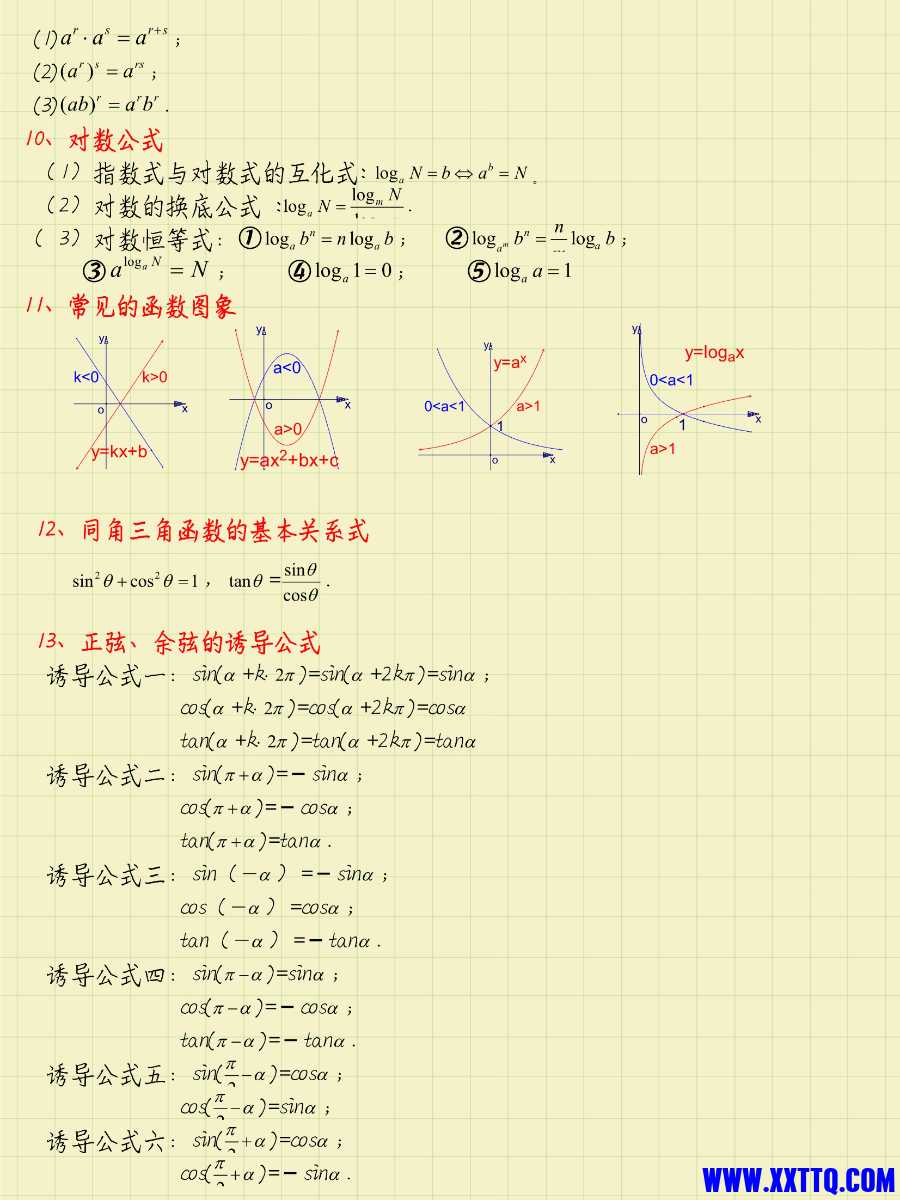 (1) a^r · a^s = a^{r+s} ;
(2) (a^r)^s = a^{rs} ;
(3) (ab)^r = a^r b^r .
10、对数公式
(1) 指数式与对数式的互化式: log_a N = b ⇔ a^b = N 。
(2) 对数的换底公式 : log_a N = log_m N .
(3) 对数恒等式: ① log_a b^n = n log_a b ; ② log_{a^m} b^n = n log_a b ;
③ a^{log_a N} = N ; ④ log_a 1 = 0 ; ⑤ log_a a = 1
11、常见的函数图象
y k<0 k>0 o x y=kx+b
y a<0 o x a>0 y=ax²+bx+c
y y=a^x 0<a<1 a>1 1 o x
y y=log_a x 0<a<1 o 1 x a>1
12、同角三角函数的基本关系式
sin²θ + cos²θ = 1 , tanθ = sinθ/cosθ .
13、正弦、余弦的诱导公式
诱导公式一: sin(α+k·2π)=sin(α+2kπ)=sinα ;
cos(α+k·2π)=cos(α+2kπ)=cosα
tan(α+k·2π)=tan(α+2kπ)=tanα
诱导公式二: sin(π+α)=－sinα ;
cos(π+α)=－cosα ;
tan(π+α)=tanα .
诱导公式三: sin（－α）=－sinα ;
cos（－α）=cosα ;
tan（－α）=－tanα .
诱导公式四: sin(π－α)=sinα ;
cos(π－α)=－cosα ;
tan(π－α)=－tanα .
诱导公式五: sin(π/2－α)=cosα ;
cos(π/2－α)=sinα ;
诱导公式六: sin(π/2+α)=cosα ;
cos(π/2+α)=－sinα .
WWW.XXTTQ.COM